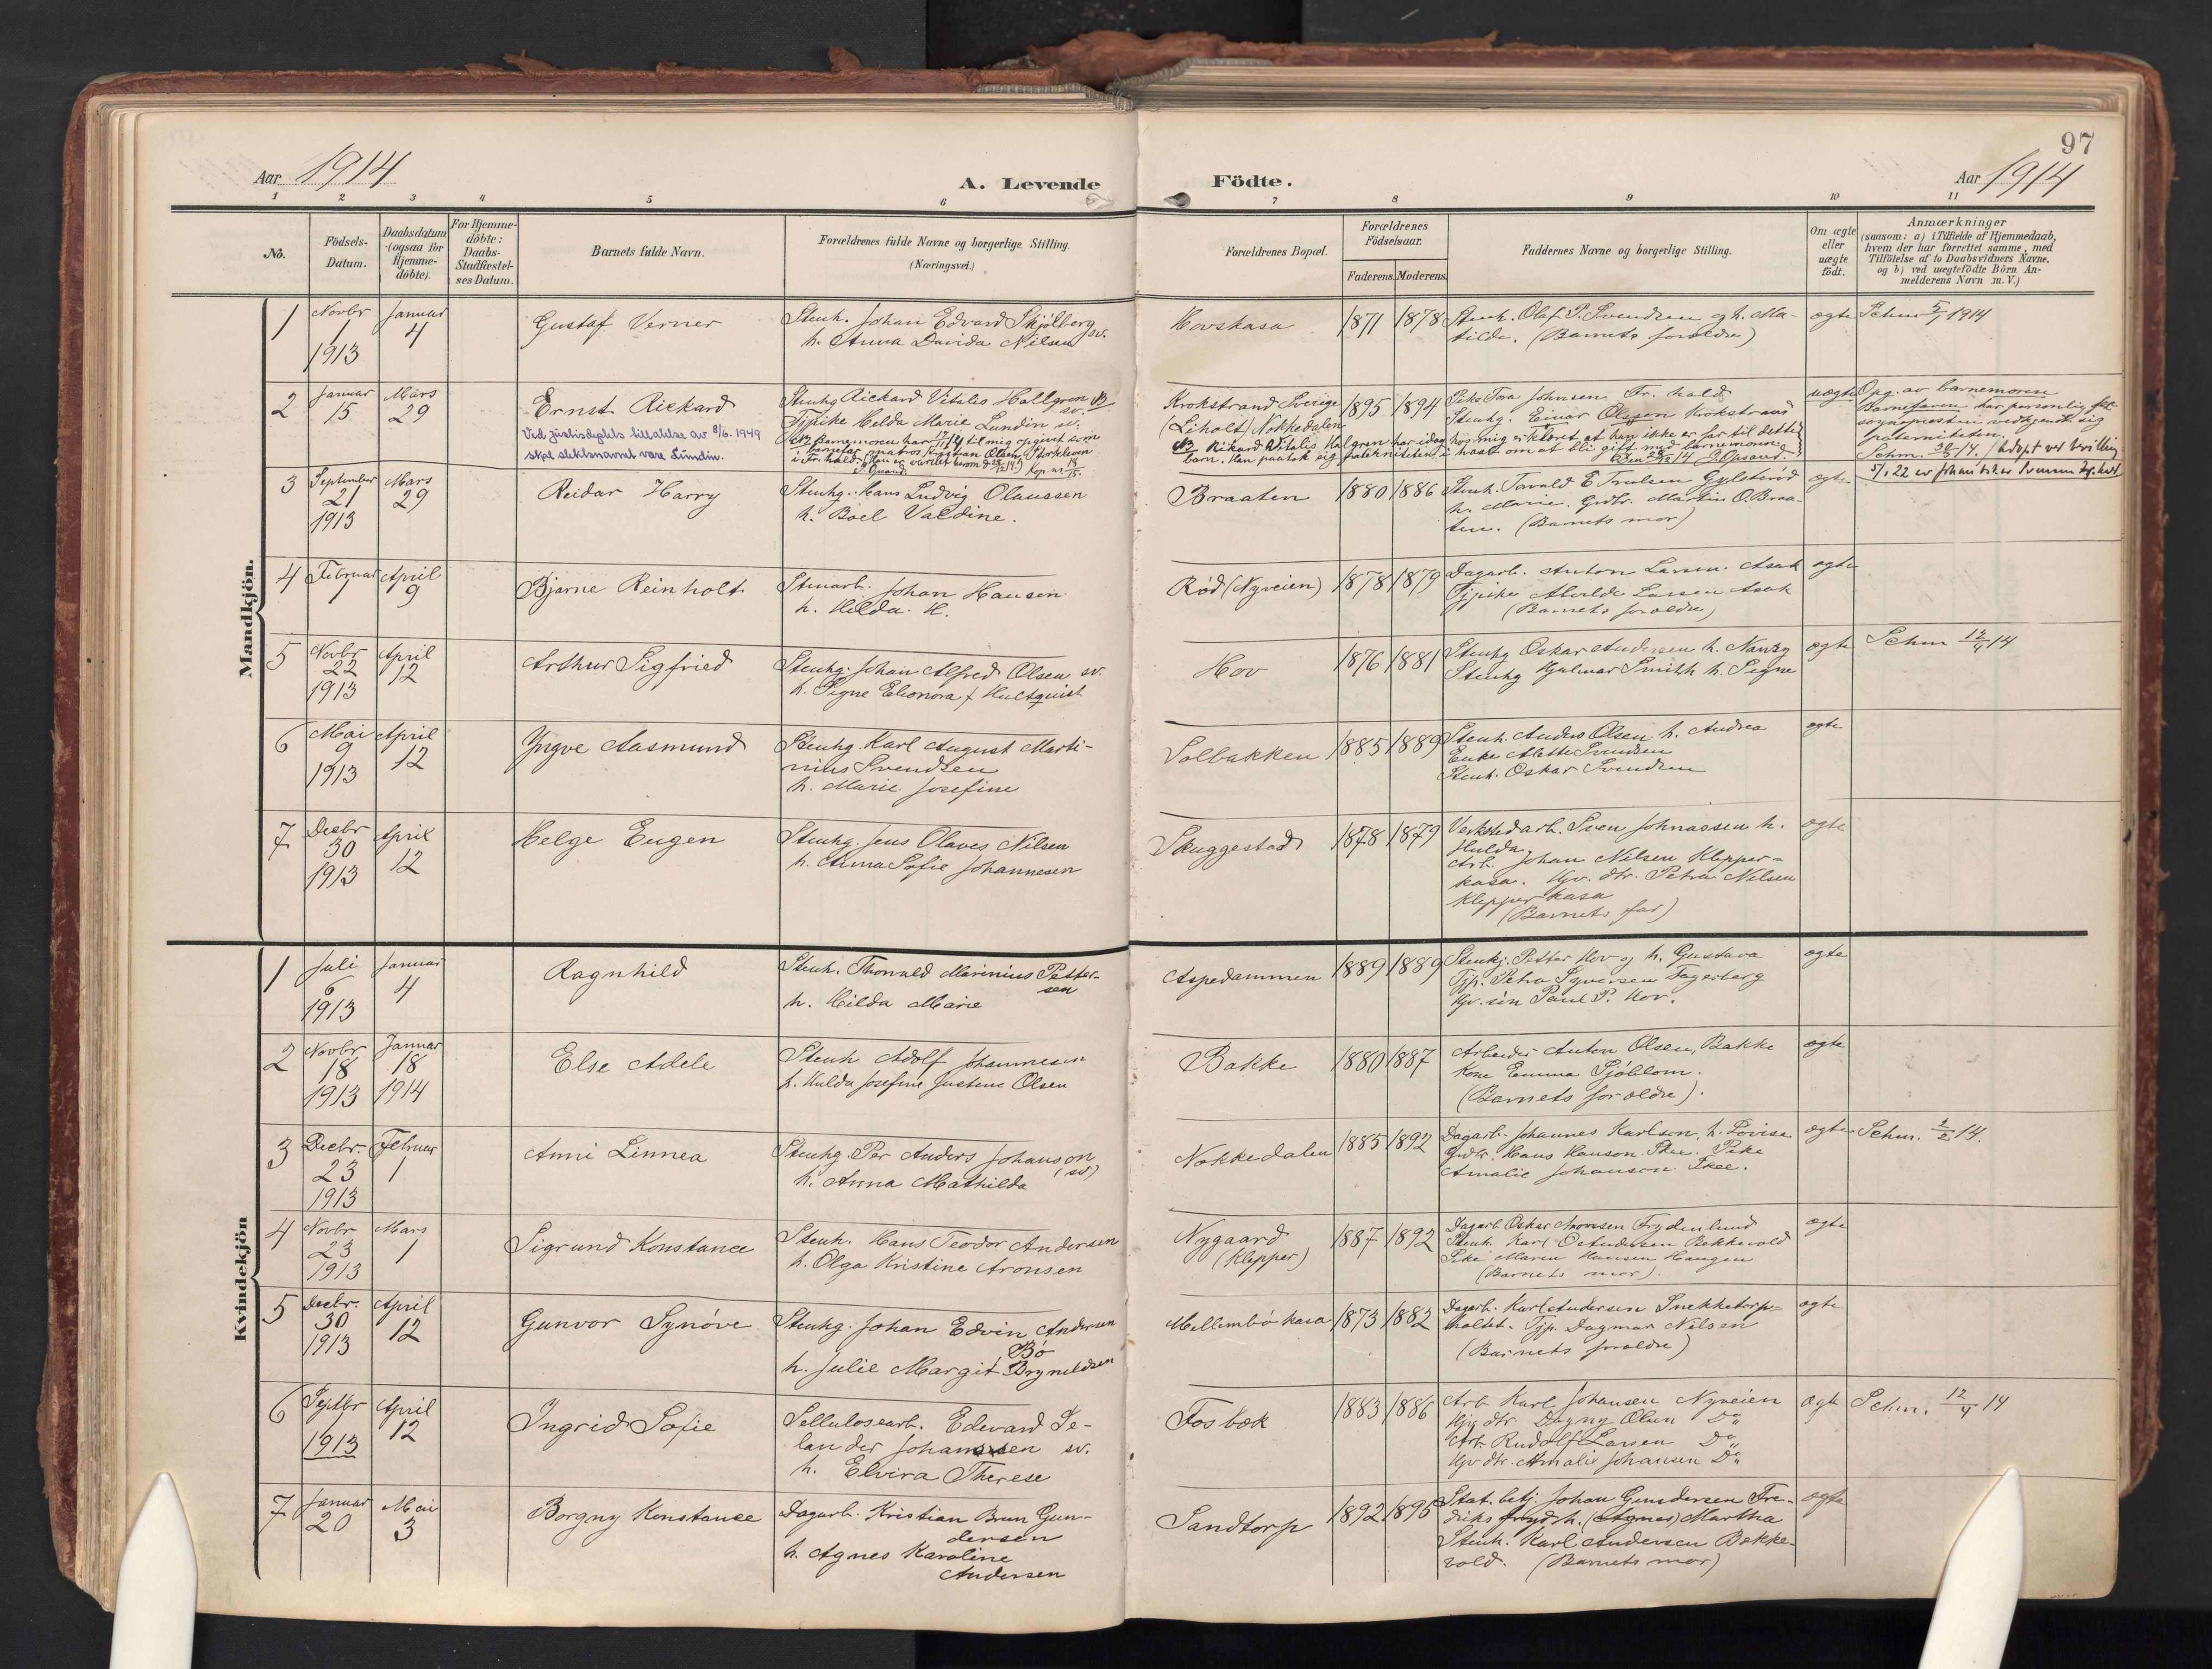 97
Aar 1914
A. Levende Födte.
Aar 1914
1 2 3 4 5 6 7 8 9 10 11
No.
Födsels-
Datum.
Daabsdatum
(ogsaa for
Hjemme-
döbte).
For Hjemme-
döbte:
Daabs-
Stadfæstel-
ses Datum.
Barnets fulde Navn.
Forældrenes fulde Navne og borgerlige Stilling.
(Næringsvei.)
Forældrenes Bopæl.
Forældrenes
Födselsaar.
Faderens. Moderens.
Faddernes Navne og borgerlige Stilling.
Om ægte
eller
uægte
födt.
Anmærkninger
(saasom: a) i Tilfælde af Hjemmedaab,
hvem der har forrettet samme, med
Tilföielse af to Daabsvidners Navne,
og b) ved uægtefödte Börn An-
melderens Navn m. V.)
Mandkjön.
1
Novbr
1
1913
Januar
4
Gustaf Verner
Stenh. Johan Edvard Skjølberg sv.
h. Anna Davida Nilsen
Hovskasa
1871 1878
Stenh. Olaf P. Svendsen og h. Ma-
tilde. (Barnets foreldre)
ægte
Schm 5/1 1914
2
Januar
15
Mars
29
Ernst Rickard
Ved justisdeptets tillatelse av 8/6. 1949
skal slektsnavnet være Lundin.
Stenhg Rickard Vitilis Hallgren NB
sv.
Tjpike Helda Marie Lundin sv.
NB Barnemoren har 17/11 14 til mig opgivet som
barnefar matros Kristian Olsen, Storkleven
i Fr.hald.
Krokstrand Sverige
(Liholt) Nokkedalen
1895 1894
Pike Tora Johnsen Fr.hald
Stenhg. Einar Olsson Krokstrand
NB Rikard Vitalis Halgren har idag hos mig erkleret at han ikke er far til dette
barn. Han paatok sig paterniteten i hast om at bli gift med barnemoren.
uægte
Opg. av barnemoren
Barnefaren har personlig for
sognepresten vedkjendt sig
paterniteten.
3
September
21
1913
Mars
29
Reidar Harry
Stenhg. Hans Ludvig Olaussen
h. Boel Valdine.
Braaten
1880 1886
Stenh. Torvald E Trulsen Gylterød
h. Marie. Grdbr. Martin O. Braa-
ten. (Barnets mor)
ægte
4
Februar
1
April
9
Bjarne Reinholt
Stenarb. Johan Hansen
h. Hilda H.
Rød (Nyveien)
1878 1879
Dagarb. Anton Larsen Asak
Tjpike Alvilde Larsen Asak
(Barnets foreldre)
ægte
5
Novbr
22
1913
April
12
Arthur Sigfried
Stenhg. Johan Alfred Olsen sv.
h. Signe Elionora f Hultquist
Hov
1876 1881
Stenhg Oskar Andersen h. Nanzy
Stenhg Hjalmar Smith h. Signe
ægte
Schm 12/4 14
6
Mai
9
1913
April
12
Yngve Aasmund
Stenhg. Karl August Marti-
nius Svendsen
h. Marie Josefine
Solbakken
1885 1889
Stenh. Anders Olsen h. Andrea
Enke Alette Svendsen
Stenh. Oskar Svendsen
ægte
7
Decbr
30
1913
April
12
Helge Eugen
Stenhg. Jens Olaves Nilsen
h. Anna Sofie Johannesen
Skuggestad
1878 1879
Verkstedarb. Sven Johnassen h.
Hulda
Arb. Johan Nilsen Klepper-
kasa. Gv. dtr. Petra Nilsen
Klepperkasa
(Barnets far)
ægte
Kvindekjön
1
Juli
6
1913
Januar
4
Ragnhild
Stenh. Thorvald Marinius Petter-
sen
h. Hilda Marie
Aspedammen
1889 1889
Stenhg. Petter Hov og h. Gustava
Tjp. Petra Syversen Fagerberg
Gv. søn Paul P. Hov.
ægte
2
Novbr
18
1913
Januar
18
1914
Else Adele
Stenh Adolf Johannesen
h. Hulda Josefine Justine Olsen
Bakke
1880 1887
Arbeider Anton Olsen, Bakke
Kone Emma Sjøblom.
(Barnets foreldre).
ægte
3
Decbr.
23
1913
Februar
1
Anni Linnea
Stenhg. Per Anders Johanson
(sv)
h. Anna Mathilda
Nokkedalen
1885 1892
Dagarb. Johannes Karlson, h. Lovise
Grdbr. Hans Hanson Skee. Pike
Amalie Johanson Skee.
ægte
Schm. 1/2 14.
4
Novbr
23
1913
Mars
1
Sigrund Konstance
Stenh. Hans Teodor Andersen
h. Olga Kristine Aronsen
Nygaard
(Klepper)
1887 1892
Dagarb Oskar Aronsen Frydenlund
Stenh. Karl O Andersen Bekkevold
Pike Maren Hansen Haugen
(Barnets mor).
ægte
5
Decbr.
30
1913
April
12
Gunvor Synöve
Stenhg. Johan Edvin Andersen
Bö
h. Julie Margit Bryneldsen
Mellembö kasa
1873 1882
Dagarb. Karl Andersen Snekketorp-
holtet. Tjp. Dagmar Nilsen
(Barnets foreldre)
ægte
6
Septbr
1913
April
12
Ingrid Sofie
Sellulosearb. Edevard Se-
lander Johanssen sv.
h. Elvira Therese
Fosbæk
1883 1886
Arb Karl Johansen Nyveien
Gv. dtr. Dagny Olsen Do
Arb. Rudolf Larsen Do
Gv dtr. Amalie Johansen Do
ægte
Schm. 12/4 14
7
Januar
20
Mai
3
Borgny Konstance
Dagarb. Kristian Brun Gun-
dersen
h. Agnes Karoline
Andersen
Sandtorp
1892 1895
Stat. betj. Johan Gundersen Fre-
driks fryd h. (Agnes) Martha
Stenh. Karl Andersen Bekke-
vold. (Barnets mor)
ægte